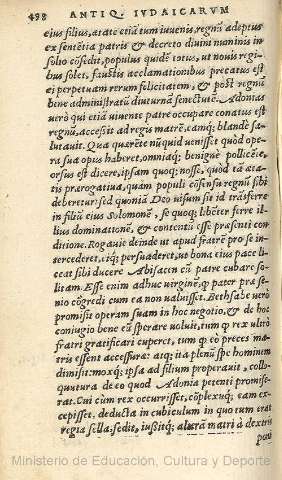 498 ANTIQ. IVDAICARVM
eius filius, ætate etiã tum iuvenis, regnũ adeptus
ex sentẽtia patris & decreto divini numinis in
solio cõsedit, populus quidẽ totus, ut novis regi-
bus solet, faustis acclamationibus precatus est
ei perpetuam rerum felicitatem, & post regnũ
bene administratũ diuturnã senectutẽ. Adonias
verò qui etiã vivente patre occupare conatus est
regnũ, accessit ad regis matrẽ, eamq; blandè sa-
lutavit. Qua quærẽte nũ quid venisset quòd ope-
ra sua opus haberet, omniaq; benignè pollicẽte,
orsus est dicere, ipsam quoq; nosse, quòd tã æta-
tis prærogativa, quàm populi cõsensu regnũ sibi
deberetur: sed quoniã Deo visum sit id trãsferre
in filiũ eius Solomonẽ, se quoq; libẽter ferre il-
lius dominationẽ, & contentũ esse præsenti con-
ditione. Rogavit deinde ut apud fratrẽ pro se in-
tercederet, eiq; persuaderet, ut bona eius pace li-
ceat sibi ducere Abisacen cũ patre cubare so-
litam. Esse enim adhuc virginẽ, q̃ pater præ se-
nio cõgredi cum ea non valuisset. Bethsabe verò
promisit operam suam in hoc negotio, & de hoc
coniugio bene eũ sperare voluit, tum q̃ rex ultrò
fratri gratificari cuperet, tum q̃ eò preces ma-
tris essent accessuræ: atq; ita plenũ spe hominum
dimisit: moxq; ipsa ad filium properavit, collo-
quutura de eo quod Adoniæ petenti promise-
rat. Cui cùm rex occurrisset, cõplexusq; eam ex-
cepisset, deducta in cubiculum in quo tum erat
regia sella: sedit, iussitq; alterã matri à dextris
poni
Ministerio de Educación, Cultura y Deporte